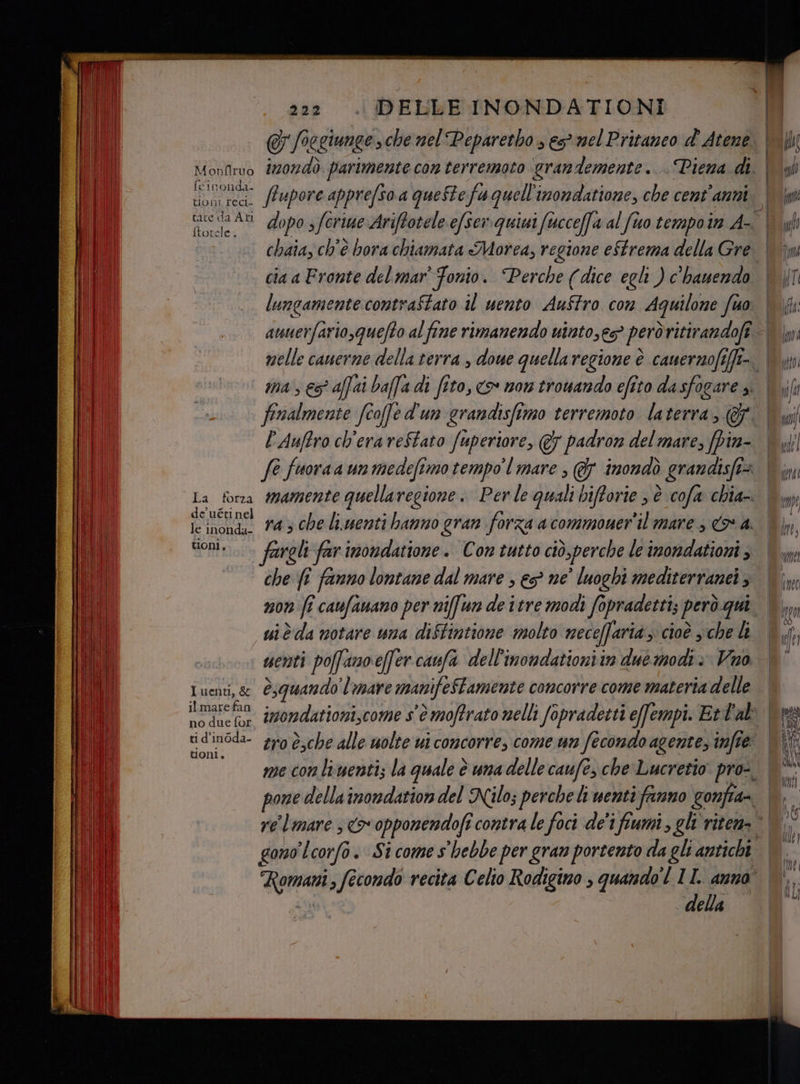 222 DELLE INONDATIONI
& soggiunge, che nel Peparetho, & nel Pritaneo d'Atene
inondò parimente con terremoto grandemente. Piena di
stupore appresso a queste fu quell'inondatione, che cent'anni
dopo, scriue Aristotele esser quiui successa al suo tempo in A-
chaia, ch'è hora chiamata Morea, regione estrema della Gre
cia a Fronte del mar' Ionio. Perche (dice egli) c'hauendo
lungamente contrastato il uento Austro con Aquilone suo
auuersario, questo al fine rimanendo uinto, & però ritirandosi
nelle cauerne della terra, doue quella regione è cauernosissi-
ma, & assai bassa di sito, & non trouando esito da sfogare,
finalmente scosse d'un grandissimo terremoto la terra, &
l'Austro ch'era restato superiore, & padron del mare, spin-
se fuora a un medesimo tempo'l mare, & inondò grandissi-
mamente quella regione. Per le quali historie, è cosa chia-
ra, che li uenti hanno gran forza a commouer'il mare, & a
fargli far inondatione. Con tutto ciò, perche le inondationi,
che si fanno lontane dal mare, & ne' luoghi mediterranei,
non si causauano per nissun de i tre modi sopradetti; però qui
ui è da notare una distintione molto necessaria, cioè, che li
uenti possano esser causa dell'inondationi in due modi. Vno
è, quando'l mare manifestamente concorre come materia delle
inondationi, come s'è mostrato nelli sopradetti essempi. Et l'al
tro è, che alle uolte ui concorre, come un secondo agente, insie
me con li uenti; la quale è una delle cause, che Lucretio pro-
pone della inondation del Nilo; perche li uenti fanno gonfia-
re'l mare, & opponendosi contra le foci de'i fiumi, gli riten-
gono'l corso. Si come s'hebbe per gran portento da gli antichi
Romani, secondo recita Celio Rodigino, quando'l II. anno
della
Monstruo
se inonda-
tioni reci-
tate da Ari
stotele.
La forza
de' uẽti nel
le inonda-
tioni.
I uenti, &
il mare fan
no due sor
ti d'inõda-
tioni.